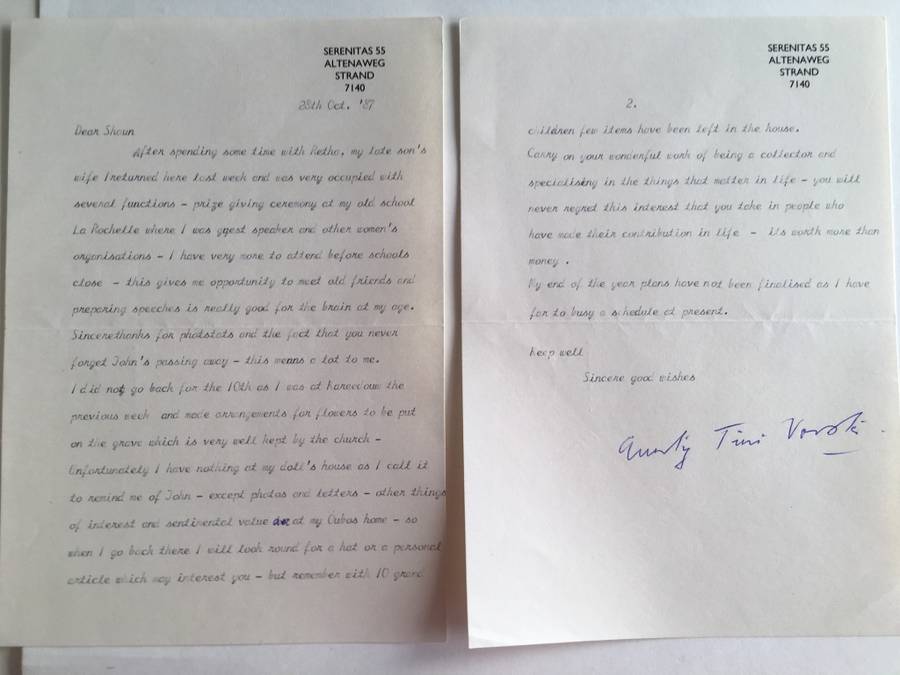 SERENITAS 55
ALTENAWEG
STRAND
7140
28th Oct. '87
Dear Shaun
After spending some time with Retha, my late son's
wife I returned here last week and was very occupied with
several functions - prize giving ceremony at my old school
La Rochelle where I was guest speaker and other women's
organisations - I have very more to attend before schools
close - this gives me opportunity to meet old friends and
preparing speeches is really good for the brain at my age.
Sincerethanks for photstats and the fact that you never
forget John's passing away - this means a lot to me.
I did not go back for the 10th as I was at Kareedouw the
previous week and made arrangements for flowers to be put
on the grave which is very well kept by the church -
Unfortunately I have nothing at my doll's house as I call it
to remind me of John - except photos and letters - other things
of interest and sentimental value at my Oubos home - so
when I go back there I will look round for a hat or a personal
article which may interest you - but remember with 10 grand
SERENITAS 55
ALTENAWEG
STRAND
7140
2.
children few items have been left in the house.
Carry on your wonderful work of being a collector and
specialising in the things that matter in life - you will
never regret this interest that you take in people who
have made their contribution in life - its worth more than
money .
My end of the year plans have not been finalised as I have
far to busy a schedule at present.
Keep well
Sincere good wishes
Tini Vorster.